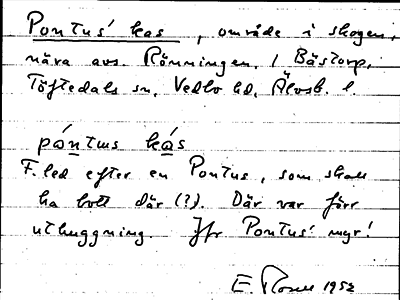 Pontus' kas, område i skogen,
nära avs. Rönningen, i Bästorp,
Töftedals sn, Vedbo hd, Älvsb. l.
pón̲tus ká̲s
F. led efter en Pontus, som skall
ha bott där (?). Där var förr
uthuggning. Jfr Pontus' myr!
E. 1952